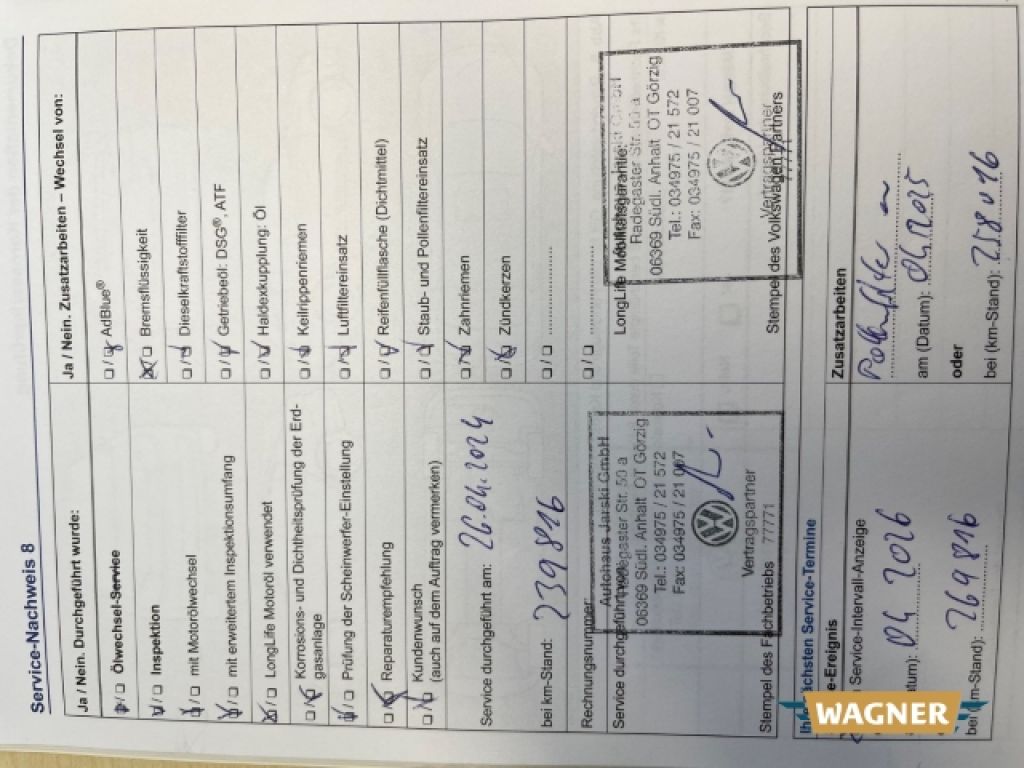 Service-Nachweis 8
Ja / Nein. Durchgeführt wurde:
Ölwechsel-Service
Inspektion
mit Motorölwechsel
mit erweitertem Inspektionsumfang
LongLife Motoröl verwendet
Korrosions- und Dichtheitsprüfung der Erd-
gasanlage
Prüfung der Scheinwerfer-Einstellung
Reparaturempfehlung
Kundenwunsch
(auch auf dem Auftrag vermerken)
Service durchgeführt am: 26.04.2024
bei km-Stand: 239816
Rechnungsnummer:
Service durchgeführt von:
Autohaus Jarski GmbH
Radegaster Str. 50 a
06369 Südl. Anhalt OT Görzig
Tel.: 034975 / 21 572
Fax: 034975 / 21 007
Vertragspartner
Stempel des Fachbetriebs 77771
Ja / Nein. Zusatzarbeiten – Wechsel von:
AdBlue®
Bremsflüssigkeit
Dieselkraftstofffilter
Getriebeöl: DSG®, ATF
Haldexkupplung: Öl
Keilrippenriemen
Luftfiltereinsatz
Reifenfüllflasche (Dichtmittel)
Staub- und Pollenfiltereinsatz
Zahnriemen
Zündkerzen
LongLife Mobilitätsgarantie:
Radegaster Str. 50 a
06369 Südl. Anhalt OT Görzig
Tel.: 034975 / 21 572
Fax: 034975 / 21 007
Vertragspartner
Stempel des Volkswagen Partners
Ihre nächsten Service-Termine
e-Ereignis
Service-Intervall-Anzeige
atum): 04 2026
bei (km-Stand): 269816
Zusatzarbeiten
am (Datum): 04.2025
oder
bei (km-Stand):
WAGNER